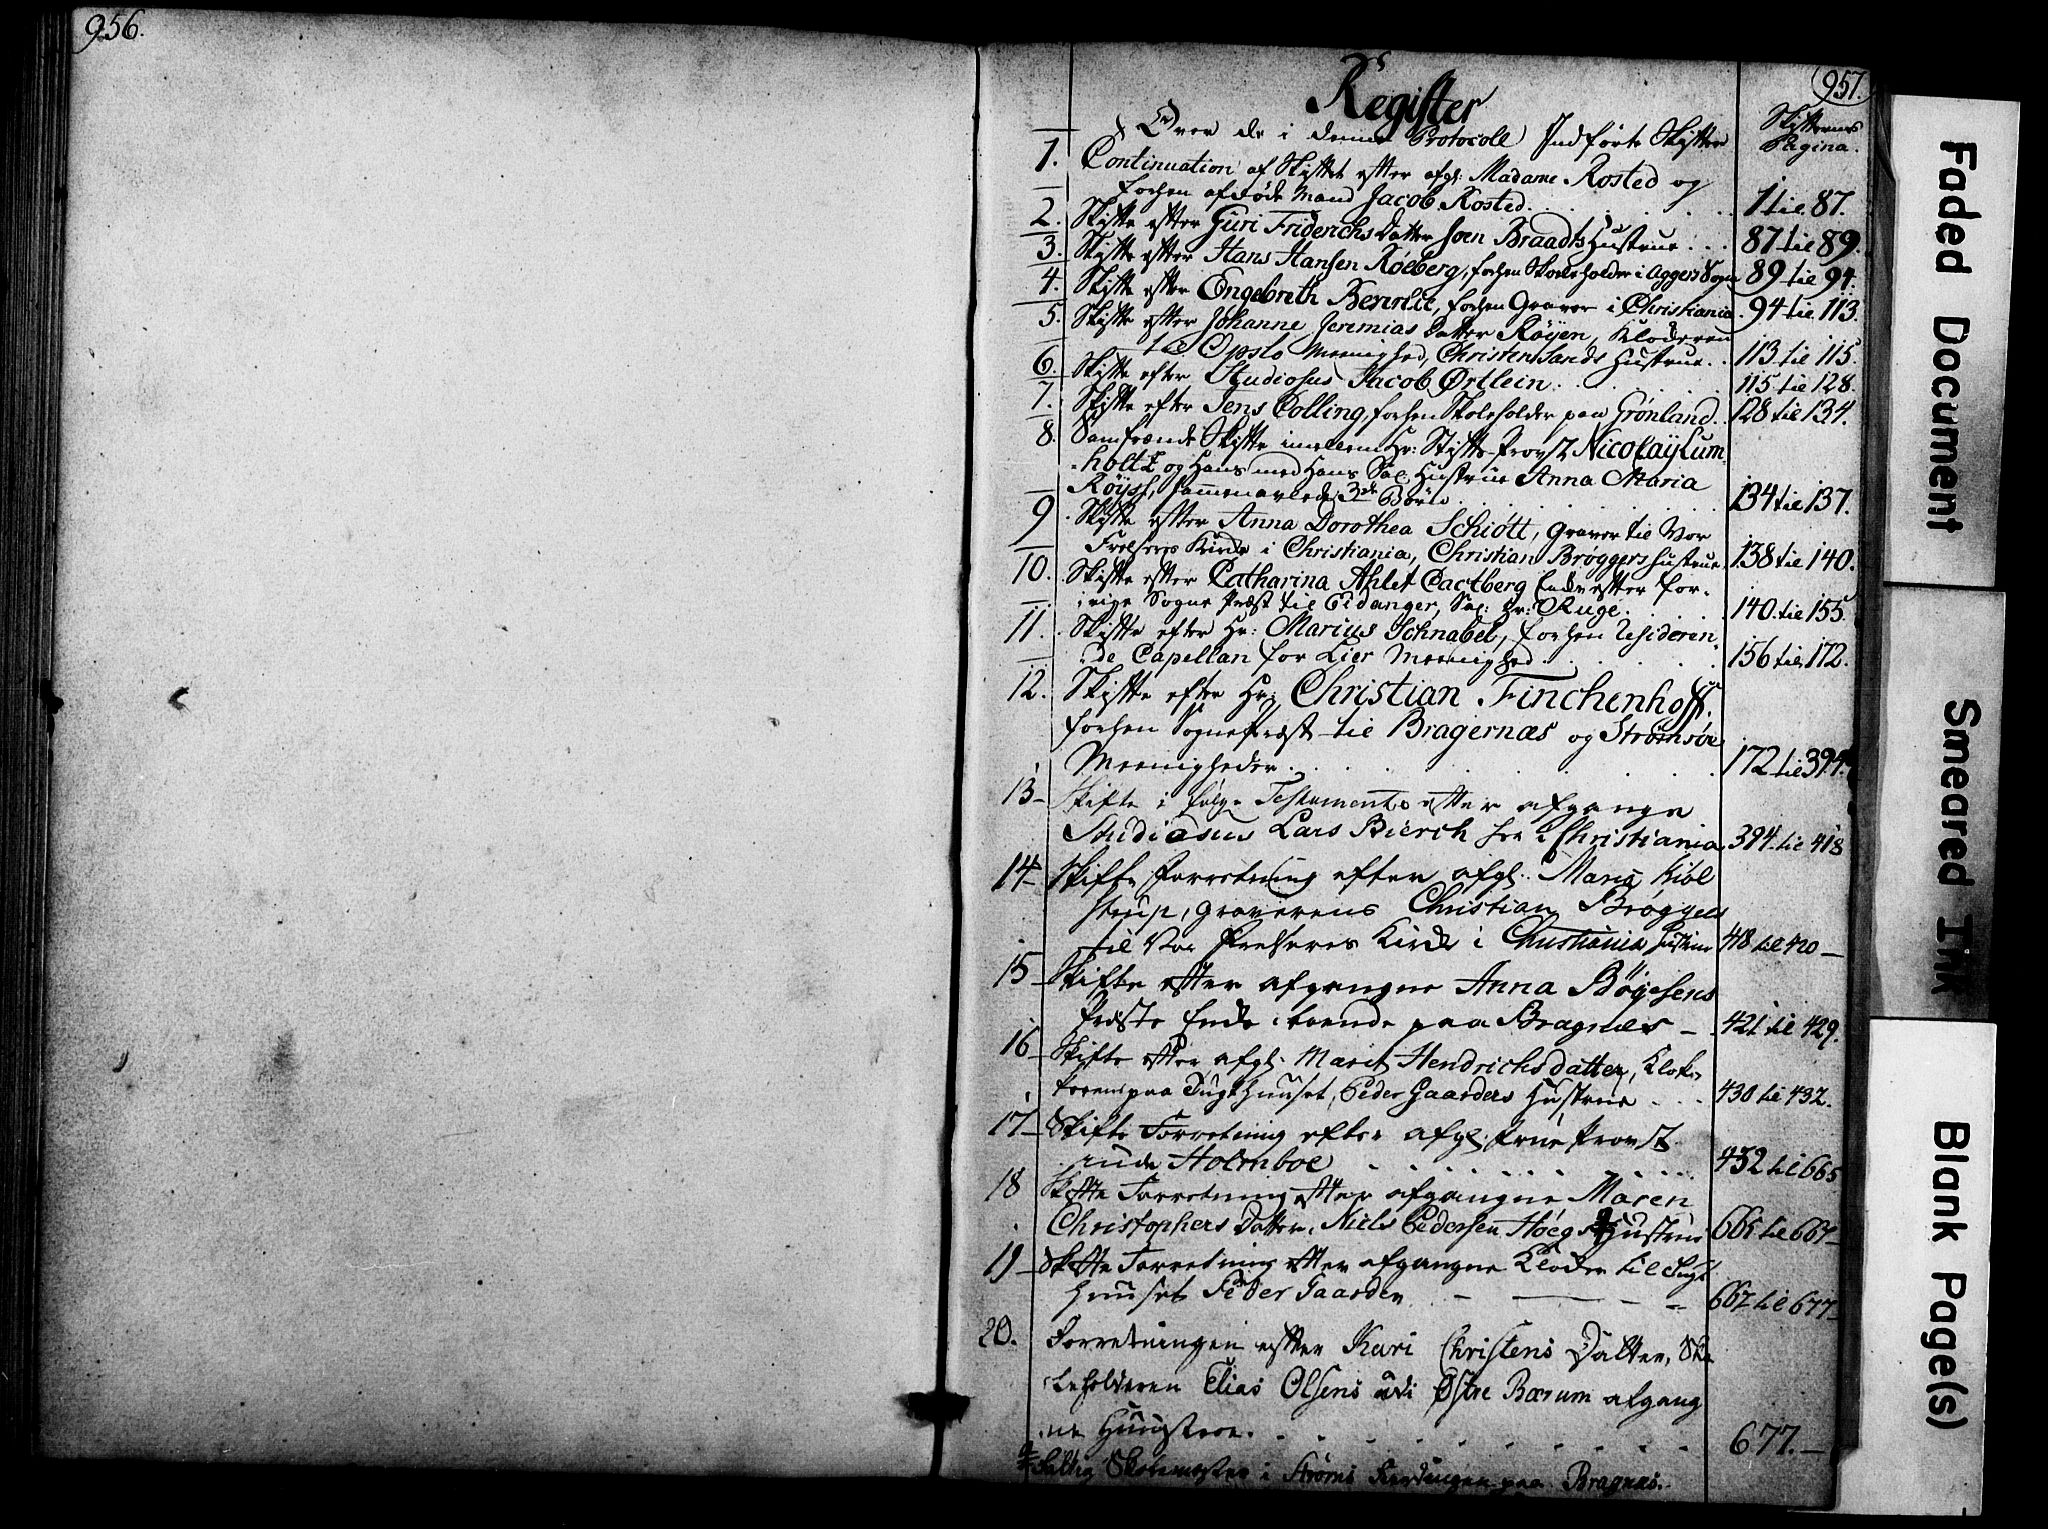 956.
957.
Register
Over de i denne Protocoll Indførte Skifter
Skifternes
Pagina.
1. Continuation af Skiftet efter afgl: Madame Rosted og
forhen afdøde Mand Jacob Rosted. 1 til 87.
2. Skifte efter Guri Friderichs Datter Joen Braadts Hustrue . . . 87 til 89.
3. Skifte efter Hans Hansen Røeberg, forhen Skoleholder i Aggers Sogn 89 til 94.
4. Skifte efter Engebreth Berntie, forhen Graver i Christiania. 94 til 113.
5. Skifte efter Johanne Jeremias Datter Røyen, Klockeren
til Opslo Meenighed, Christen Sands Hustrue. . 113 til 115.
6. Skifte efter Studiosus Jacob Ørtlein. . . . 115 til 128.
7. Skifte efter Jens Colling, forhen Skoleholder paa Grønland. . 128 til 134.
8. Samfrænde Skifte imellem Hr: Stifts-Provst Nicolay Lum-
-holtz og Hans med Hans Sal: Hustrue Anna Maria
Røyst, sammenavlede 3de Børn . . . 134 til 137.
9. Skifte efter Anna Dorothea Schiøtt, Graver til Vor
Frelsers Kirke i Christiania, Christian Brøggers Hustrue. 138 til 140.
10. Skifte efter Catharina Ahlet Bactberg Enke efter for-
-rige Sogne Præst til Eidanger, Sal: Hr: Ruge. . 140 til 155.
11. Skifte efter Hr: Marius Schnabel, forhen Resideren-
-de Capellan for Lier Meenighed . . . 156 til 172.
12. Skifte efter Hr: Christian Finchenhoff.
forhen Sognepræst til Bragernæs og Strømsøe
Meenigheder . . . 172 til 394.
13- Skifte i følge Testamente efter afgangne
Studiosus Lars Bierch her i Christiania 394 til 418
14- Skifte Forretning efter afgl: Maria Kiøl
strup, Graverens Christian Brøggers
til Vor Frelseres Kirke i Christiania Hustrue 418 til 420 -
15- Skifte efter afgangne Anna Bøgesens
Præste Enke boende paa Bragnæs - . 421 til 429.
16- Skifte efter afgl: Marit Hendrichsdatter, Klok-
keren paa Tugthuuset, Peder Gaarders Hustrue . . . 430 til 432.
17- Skifte Forretning efter afgl: Frue Provst
inde Holmboe . . . 432 til 665
18 Skifte Forretning efter afgangne Maren
Christophers Datter, Niels Pedersen Høegs Hustrue 665 til 667-
19- Skifte Forretning efter afgangne Klocker til Tugt
Huuset Peder Gaarder - - - 667 til 677-
20. Forretningen efter Kari Christens Datter, Sko
leholderen Elias Olsens udi Østre Bærum afgang
ne Huustroe. . . . 677.-
Skolemester i Strøms paa Bragnæs.
Faded Document
Smeared Ink
Blank Page(s)